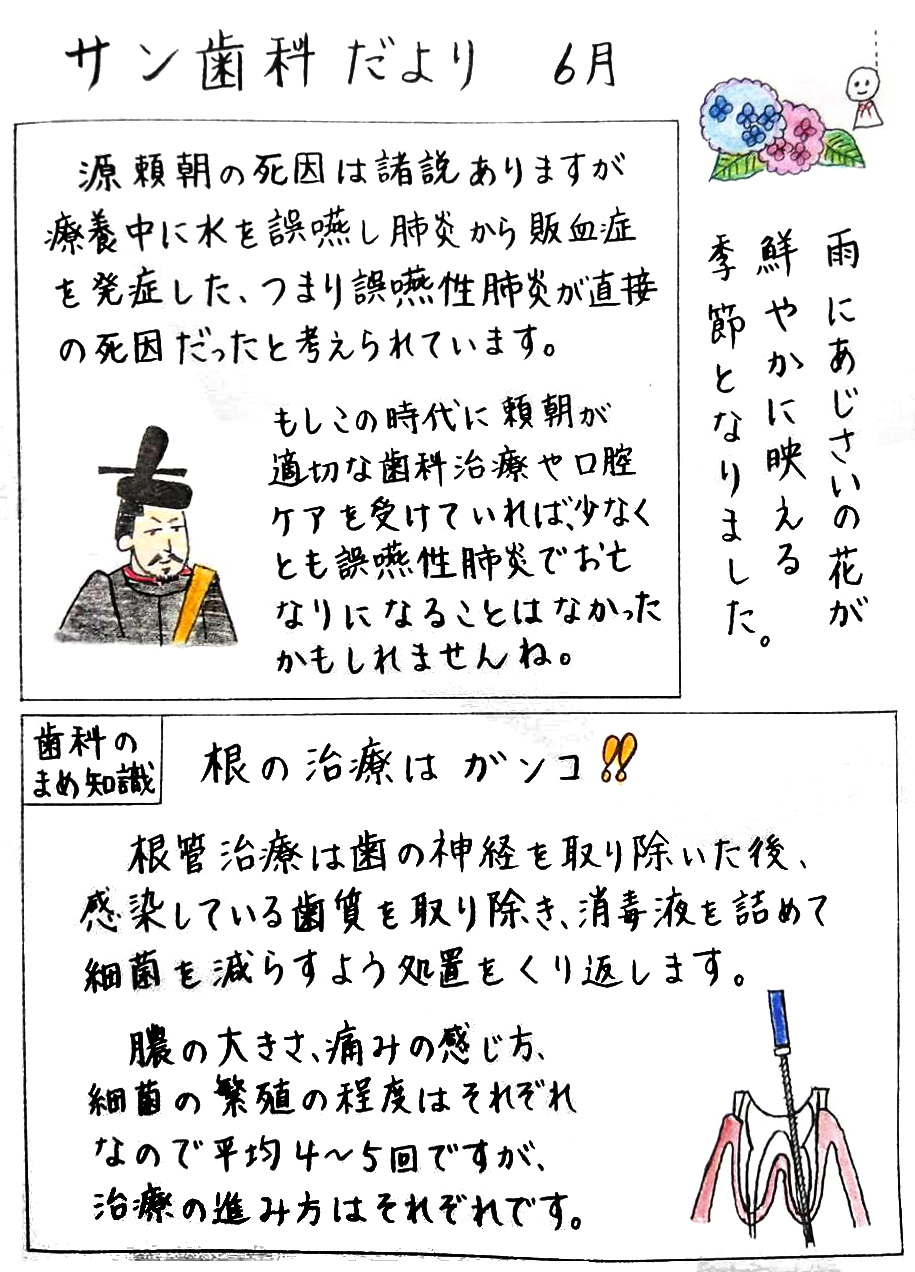 サン歯科だより 6月
雨にあじさいの花が
鮮やかに映える
季節となりました。
源頼朝の死因は諸説ありますが
療養中に水を誤嚥し肺炎から販血症
を発症した、つまり誤嚥性肺炎が直接
の死因だったと考えられています。
もしこの時代に頼朝が
適切な歯科治療や口腔
ケアを受けていれば、少なく
とも誤嚥性肺炎でお亡
なりになることはなかった
かもしれませんね。
歯科の
まめ知識
根の治療はガンコ!!
根管治療は歯の神経を取り除いた後、
感染している歯質を取り除き、消毒液を詰めて
細菌を減らすよう処置をくり返します。
膿の大きさ、痛みの感じ方、
細菌の繁殖の程度はそれぞれ
なので平均4〜5回ですが、
治療の進み方はそれぞれです。